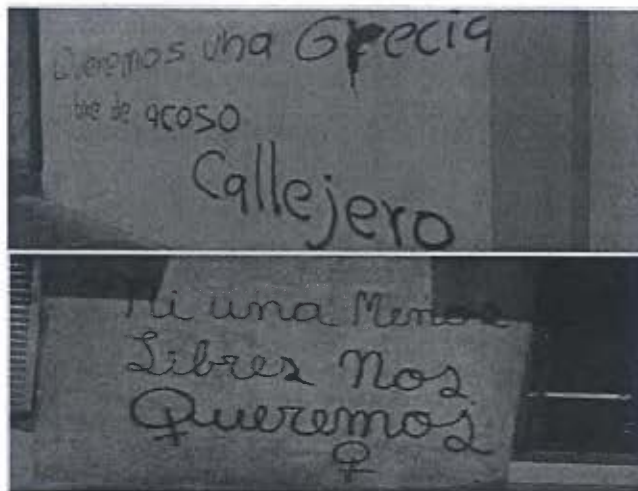 Queremos una Grecia
libre de acoso
Callejero
Ni una Menos
Libres Nos
Queremos